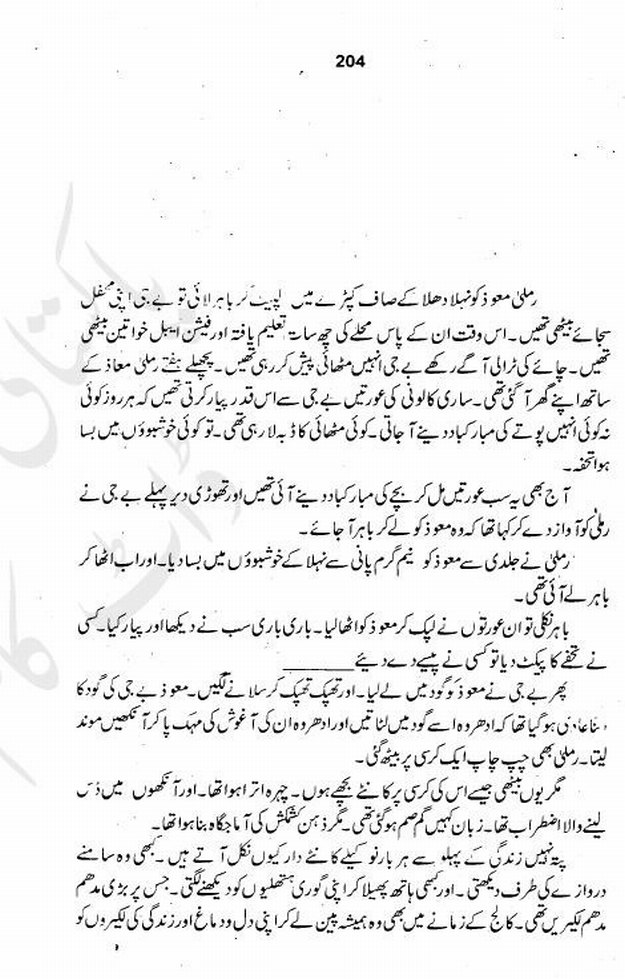 204
رملیٰ معوذ کو نہلا دھلا کے صاف کپڑے میں لپیٹ کر باہر لائی تو بے جی اپنی محفل
سجائے بیٹھی تھیں۔ اس وقت ان کے پاس محلے کی چھ سات تعلیم یافتہ اور فیشن ایبل خواتین بیٹھی
تھیں۔ چائے کی ٹرالی آگے رکھے بے جی انہیں مٹھائی پیش کر رہی تھیں۔ پچھلے ہفتے رملیٰ معاذ کے
ساتھ اپنے گھر آ گئی تھی۔ ساری کالونی کی عورتیں بے جی سے اس قدر پیار کرتی تھیں کہ ہر روز کوئی
نہ کوئی انہیں پوتے کی مبارکباد دینے آ جاتی۔ کوئی مٹھائی کا ڈبہ لا رہی تھی۔ تو کوئی خوشبوؤں میں بسا
ہوا تحفہ۔
آج بھی یہ سب عورتیں مل کر بچے کی مبارکباد دینے آئی تھیں اور تھوڑی دیر پہلے بے جی نے
رملیٰ کو آواز دے کر کہا تھا کہ وہ معوذ کو لے کر باہر آ جائے۔
رملیٰ نے جلدی سے معوذ کو نیم گرم پانی سے نہلا کے خوشبوؤں میں بسا دیا۔ اور اب اٹھا کر
باہر لے آئی تھی۔
باہر نکلی تو ان عورتوں نے لپک کر معوذ کو اٹھا لیا۔ باری باری سب نے دیکھا اور پیار کیا۔ کسی
نے تحفے کا پیکٹ دیا تو کسی نے پیسے دے دیئے ________
پھر بے جی نے معوذ کو گود میں لے لیا۔ اور تھپک تھپک کر سلانے لگیں۔ معوذ بے جی کی گود کا
عادی ہو گیا تھا کہ ادھر وہ اسے گود میں لٹاتیں اور ادھر وہ ان کی آغوش کی مہک پا کر آنکھیں موند
لیتا۔ رملیٰ بھی چپ چاپ ایک کرسی پر بیٹھ گئی۔
مگر یوں بیٹھی جیسے اس کی کرسی پر کانٹے بچھے ہوں۔ چہرہ اترا ہوا تھا۔ اور آنکھوں میں ڈس
لینے والا اضطراب تھا۔ زبان کہیں گم صم ہو گئی تھی۔ مگر ذہن کشمکش کی آماجگاہ بنا ہوا تھا۔
پتہ نہیں زندگی کے پہلو سے ہر بار نوکیلے کانٹے دار کیوں نکل آتے ہیں۔ کبھی وہ سامنے
دروازے کی طرف دیکھتی۔ اور کبھی ہاتھ پھیلا کر اپنی گوری ہتھلیوں کو دیکھنے لگتی۔ جس پر بڑی مدھم
مدھم لکیریں تھی۔ کالج کے زمانے میں بھی وہ ہمیشہ پین لے کر اپنی دل و دماغ اور زندگی کی لکیروں کو